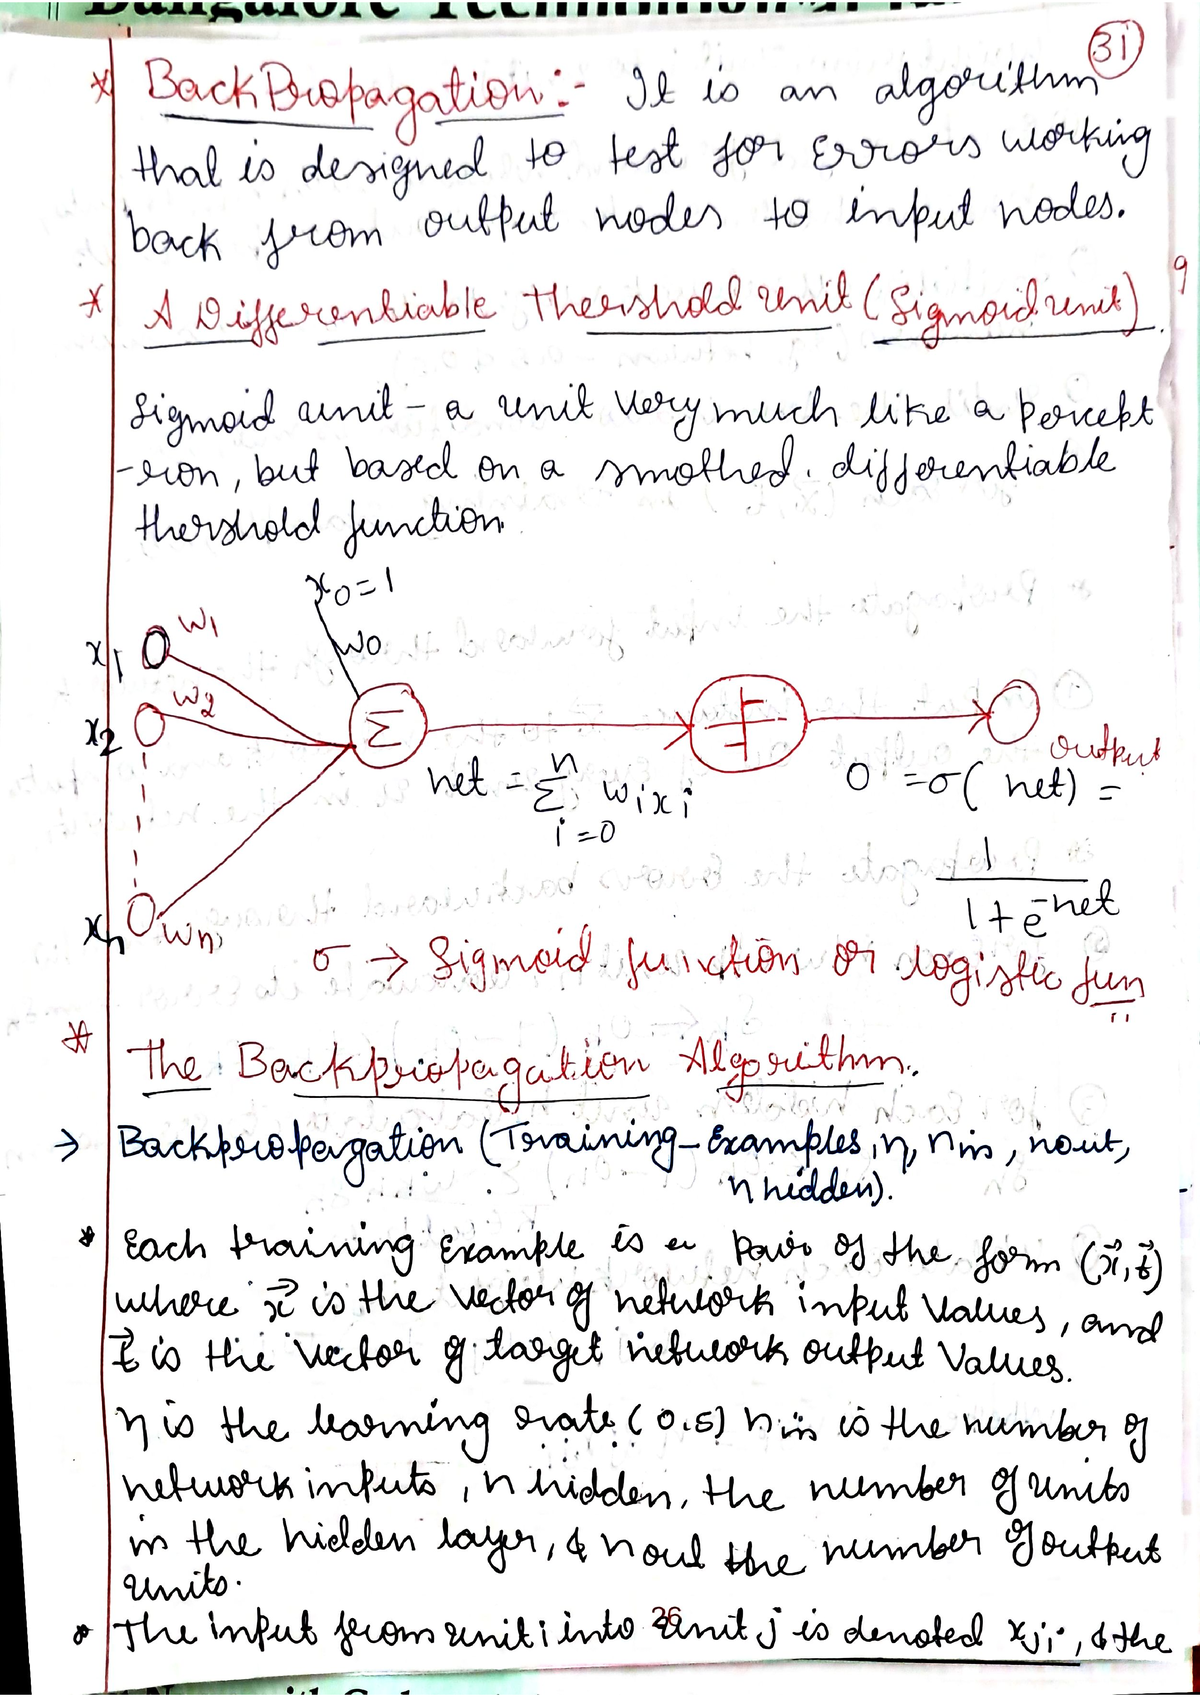 31
* BackPropagation :- It is an algorithm
that is designed to test for Errors working
back from output nodes to input nodes.
9
* A Differentiable thershold unit (Sigmoid unit)
Sigmoid unit - a unit very much like a percept
-ron, but based on a smothed. differentiable
thershold function.
x0=1
w0
x1 w1
x2 w2
Σ
output
net = Σ wixi
n
i=0
o = σ( net) =
1
1+e-net
xn wn
σ → Sigmoid function or logistic fun
* The Backpropagation Algorithm.
→ Backpropagation (Training-Examples, η, nin, nout,
n hidden).
* Each training Example is a Pair of the form (x⃗, t⃗)
where x⃗ is the vector of network input values, and
t⃗ is the vector of target network output Values.
η is the learning rate (0.5) nin is the number of
network inputs, n hidden, the number of units
in the hidden layer, & nout the number of output
units.
* The input from unit i into unit j is denoted xji, & the
36